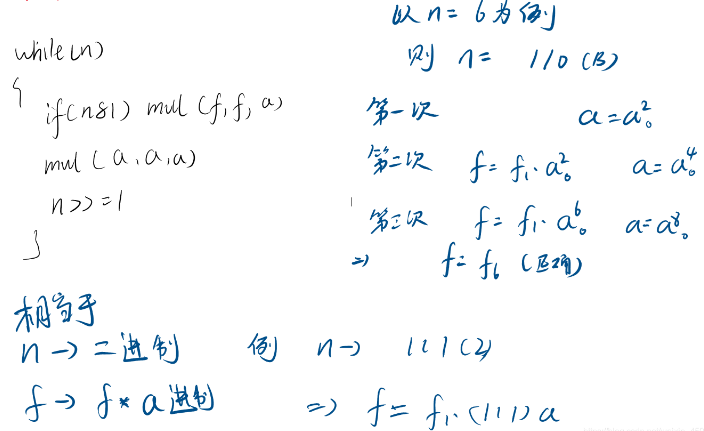 while(n)
{
if(n&1) mul(f,f,a)
mul(a,a,a)
n>>=1
}
以n=6为例
则 n= 110(B)
第一次 a=a₀²
第二次 f=f₁·a₀² a=a₀⁴
第三次 f=f₁·a₀⁶ a=a₀⁸
=> f=f₆ (正确)
相当于
n→二进制 例 n→ 111(2)
f→f*a进制 => f=f₁·(111)a